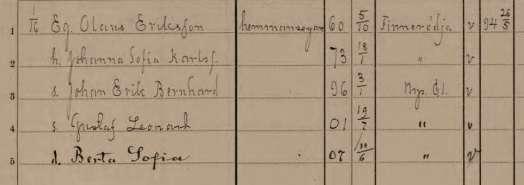 1 1/π Eg. Olaus Eriksson hemmansegare 60 5/10 Finnerödja v 94 26/5
2 h. Johanna Sofia Karlsf. 73 18/1 " v
3 s. Johan Erik Bernhard 96 3/1 Nys. Ö1. v
4 s. Gustaf Leonard 01 19/7 " v
5 d. Berta Sofia 07 /6 " v